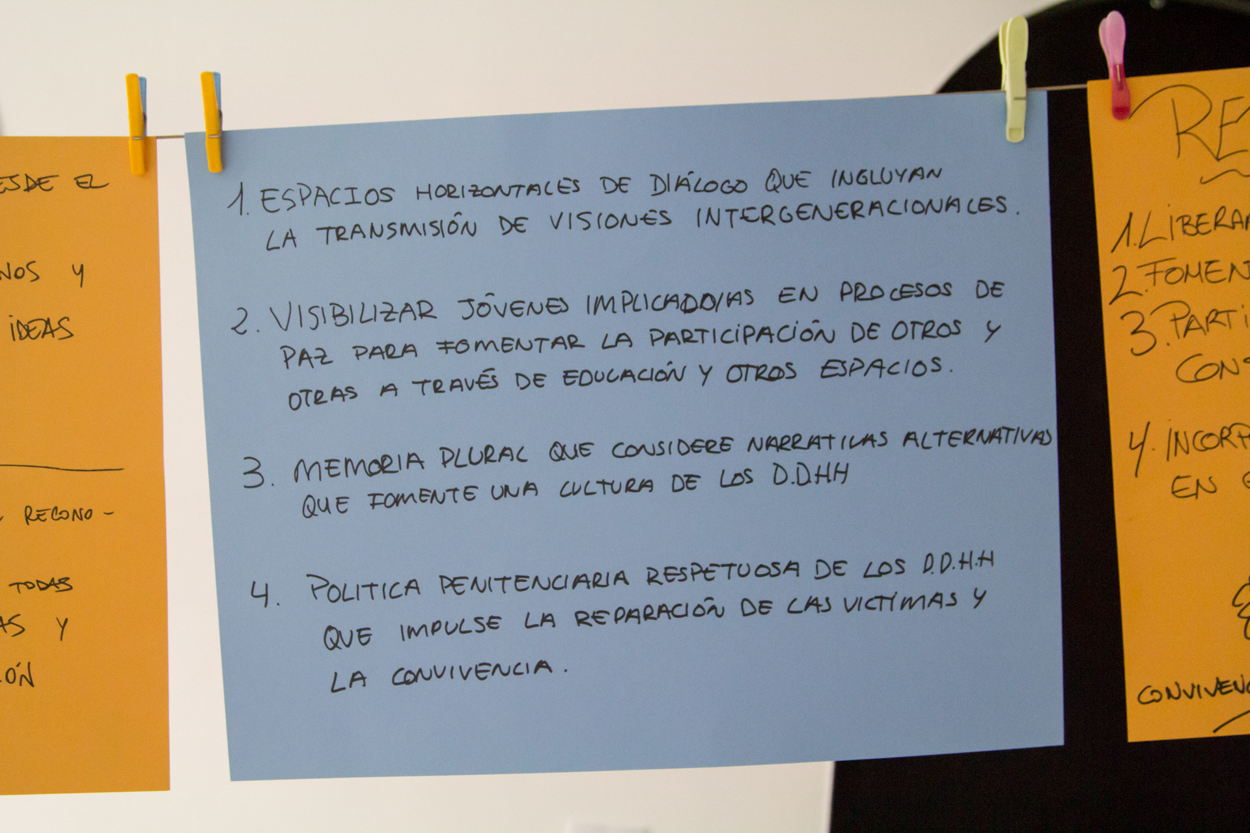 ESDE EL
NOS Y
IDEAS
RECONO-
TODAS
AS Y
ÓN
1. ESPACIOS HORIZONTALES DE DIÁLOGO QUE INCLUYAN
LA TRANSMISIÓN DE VISIONES INTERGENERACIONALES.
2. VISIBILIZAR JÓVENES IMPLICADO/AS EN PROCESOS DE
PAZ PARA FOMENTAR LA PARTICIPACIÓN DE OTROS Y
OTRAS A TRAVÉS DE EDUCACIÓN Y OTROS ESPACIOS.
3. MEMORIA PLURAL QUE CONSIDERE NARRATIVAS ALTERNATIVAS
QUE FOMENTE UNA CULTURA DE LOS D.DHH
4. POLITICA PENITENCIARIA RESPETUOSA DE LOS D.D.H.H
QUE IMPULSE LA REPARACIÓN DE LAS VICTIMAS Y
LA CONVIVENCIA.
RE
1. LIBERA
2. FOMEN
3. PARTI
CONS
4. INCORP
EN
CONVIVENC